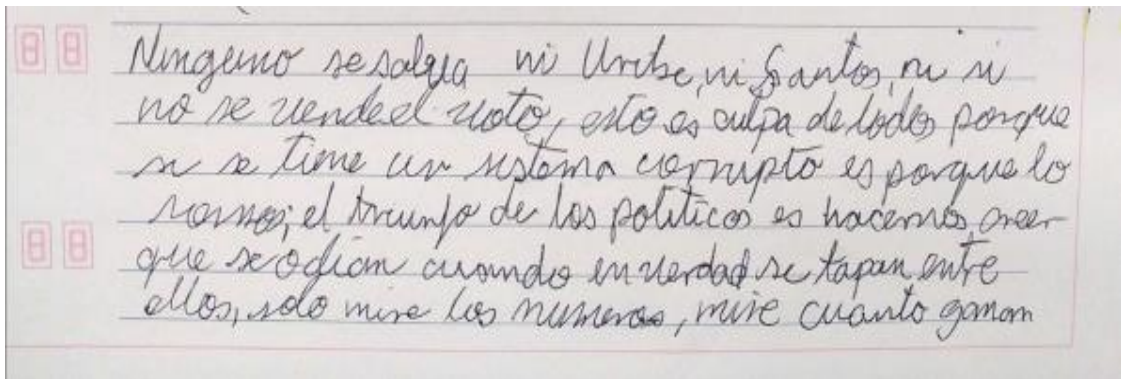 Ninguno se salva ni Uribe, ni Santos, ni si
no se vende el voto, esto es culpa de todos porque
si se tiene un sistema corrupto es porque lo
somos; el triunfo de los politicos es hacernos creer
que se odian cuando en verdad se tapan entre
ellos, solo mire los numeros, mire cuanto ganan